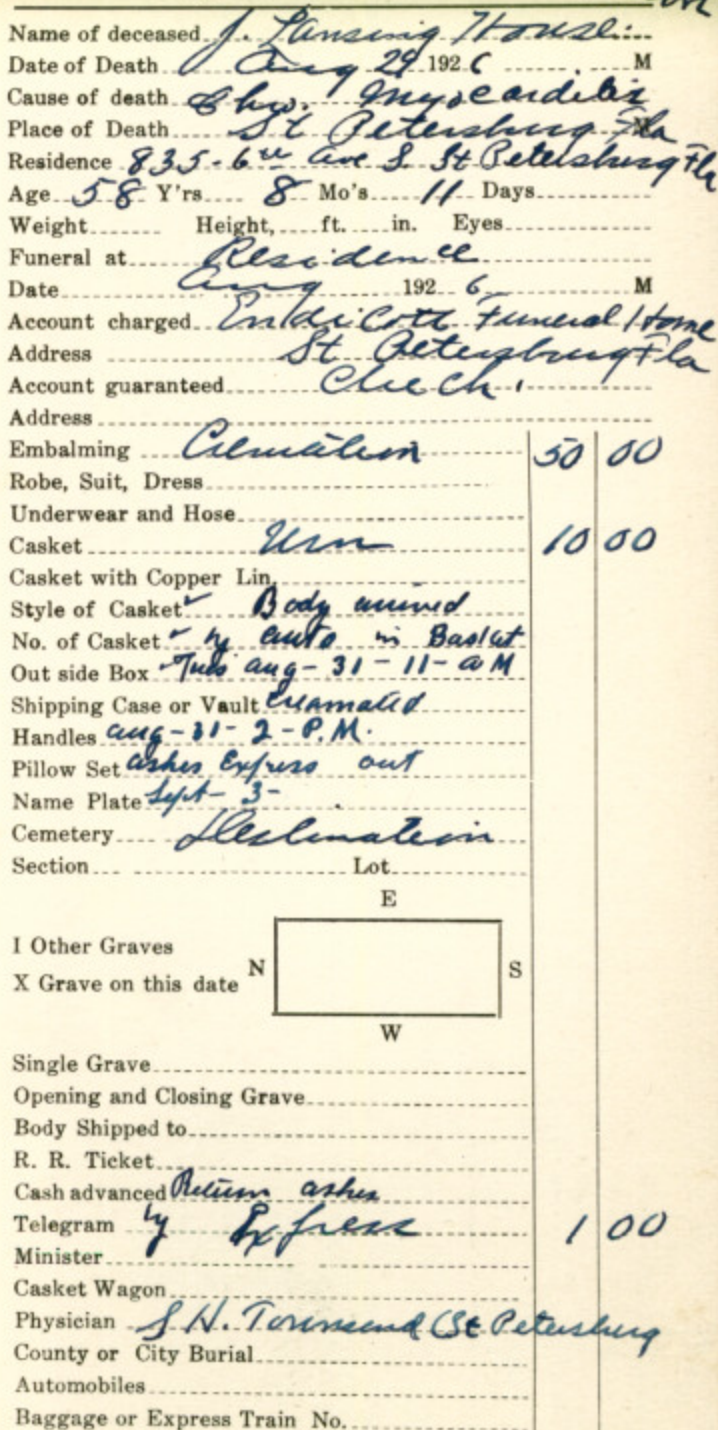 Name of deceased J. Lansing House
Date of Death Aug 29 1926 M
Cause of death Chro. Myocarditis
Place of Death St Petersburg Fla
Residence 835-6th Ave S. St Petersburg Fla
Age 58 Y'rs 8 Mo's 11 Days
Weight Height, ft. in. Eyes
Funeral at Residence
Date Aug 1926 M
Account charged Endicott Funeral Home
Address St Petersburg Fla
Account guaranteed Check
Address
Embalming Cremation 50 00
Robe, Suit, Dress
Underwear and Hose
Casket Urn 10 00
Casket with Copper Lin.
Style of Casket Body arrived
No. of Casket by auto in Basket
Out side Box Tues Aug-31-11-a M
Shipping Case or Vault Cremated
Handles Aug-31-2-P.M.
Pillow Set ashes Express out
Name Plate Sept-3-
Cemetery Destination
Section Lot
E
I Other Graves
N S
X Grave on this date
W
Single Grave
Opening and Closing Grave
Body Shipped to
R. R. Ticket
Cash advanced Return ashes
Telegram by Express 1 00
Minister
Casket Wagon
Physician S H. Townsend (St Petersburg
County or City Burial
Automobiles
Baggage or Express Train No.